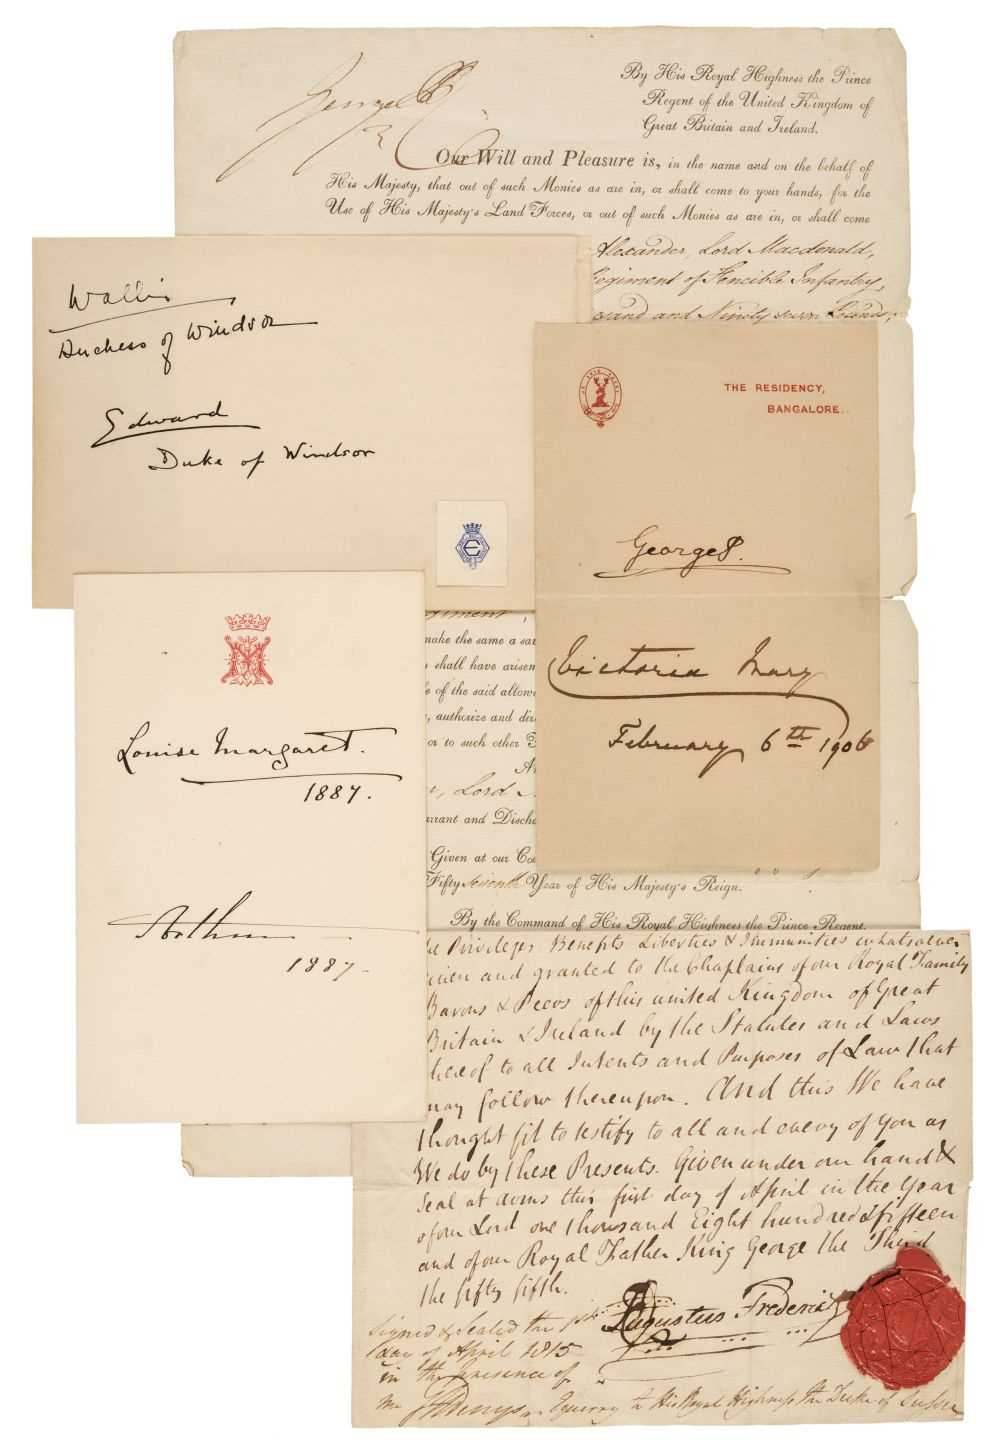 George P R
By His Royal Highness the Prince
Regent of the United Kingdom of
Great Britain and Ireland.
Our Will and Pleasure is, in the name and on the behalf of
His Majesty, that out of such Monies as are in, or shall come to your hands, for the
Use of His Majesty's Land Forces, or out of such Monies as are in, or shall come
Alexander, Lord Macdonald,
Regiment of Fencible Infantry,
and Ninety seven Pounds,
Wallis
Duchess of Windsor
Edward
Duke of Windsor
E
THE RESIDENCY,
BANGALORE.
George P.
Victoria Mary
February 6th 1906
Louise Margaret.
1887.
Arthur
1887.
make the same a
shall have arisen
of the said allow
authorize and
or to such other
Lord
rrant and Discha
Given at our Co
Fifty seventh Year of His Majesty's Reign.
By the Command of His Royal Highness the Prince Regent.
Privileges Benefits Liberties & Immunities whatsoever
given and granted to the Chaplains of our Royal Family
Barons & Peers of this united Kingdom of Great
Britain & Ireland by the Statutes and Laws
thereof to all Intents and Purposes of Law that
may follow thereupon. And this We have
thought fit to testify to all and every of You as
We do by these Presents. Given under our hand &
Seal at arms this first day of April in the Year
of our Lord one thousand Eight hundred & fifteen
and of our Royal Father King George the Third
the fifty fifth.
Augustus Frederick
Signed & Sealed the 1st
day of April 1815
in the presence of
Equerry to His Royal Highness the Duke of Sussex